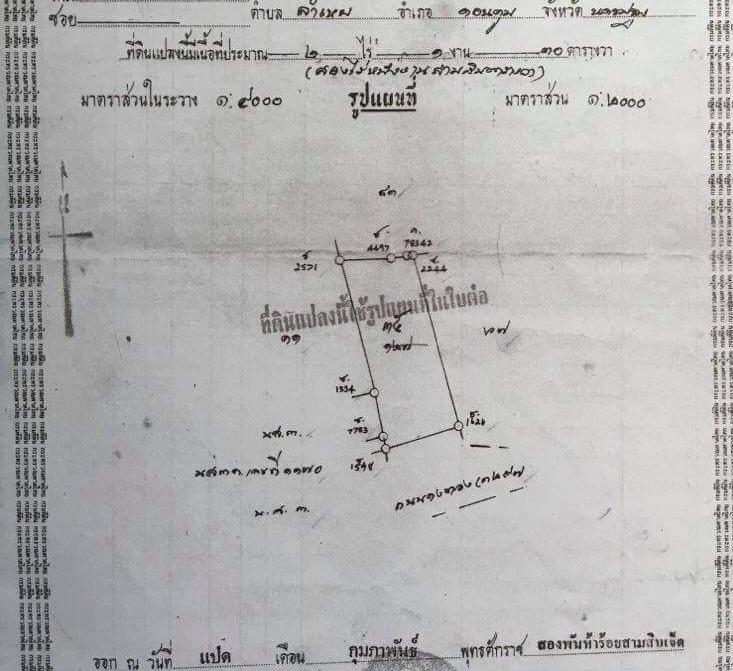 ซอย ตำบล ลำเหย อำเภอ ดอนตูม จังหวัด นครปฐม
ที่ดินแปลงนี้มีเนื้อที่ประมาณ ๒ ไร่ ๑ งาน ๓๐ ตารางวา
(สองไร่หนึ่งงานสามสิบตารางวา)
มาตราส่วนในระวาง ๑:๔๐๐๐ รูปแผนที่ มาตราส่วน ๑:๒๐๐๐
๕๓
ซ. 4497 ก. 78342
ซ 2571 ซ. 2244
ที่ดินแปลงนี้ใช้รูปแผนที่ในใบต่อ
๓๑ ๓๕ ๖๗
ซ. 1334
น.ส.๓. ซ. 7783 ซ. 1626
น.ส.๓ก. เลขที่ ๑๑๗๐
น.ส.๓.
ออก ณ วันที่ แปด เดือน กุมภาพันธ์ พุทธศักราช สองพันห้าร้อยสามสิบเจ็ด